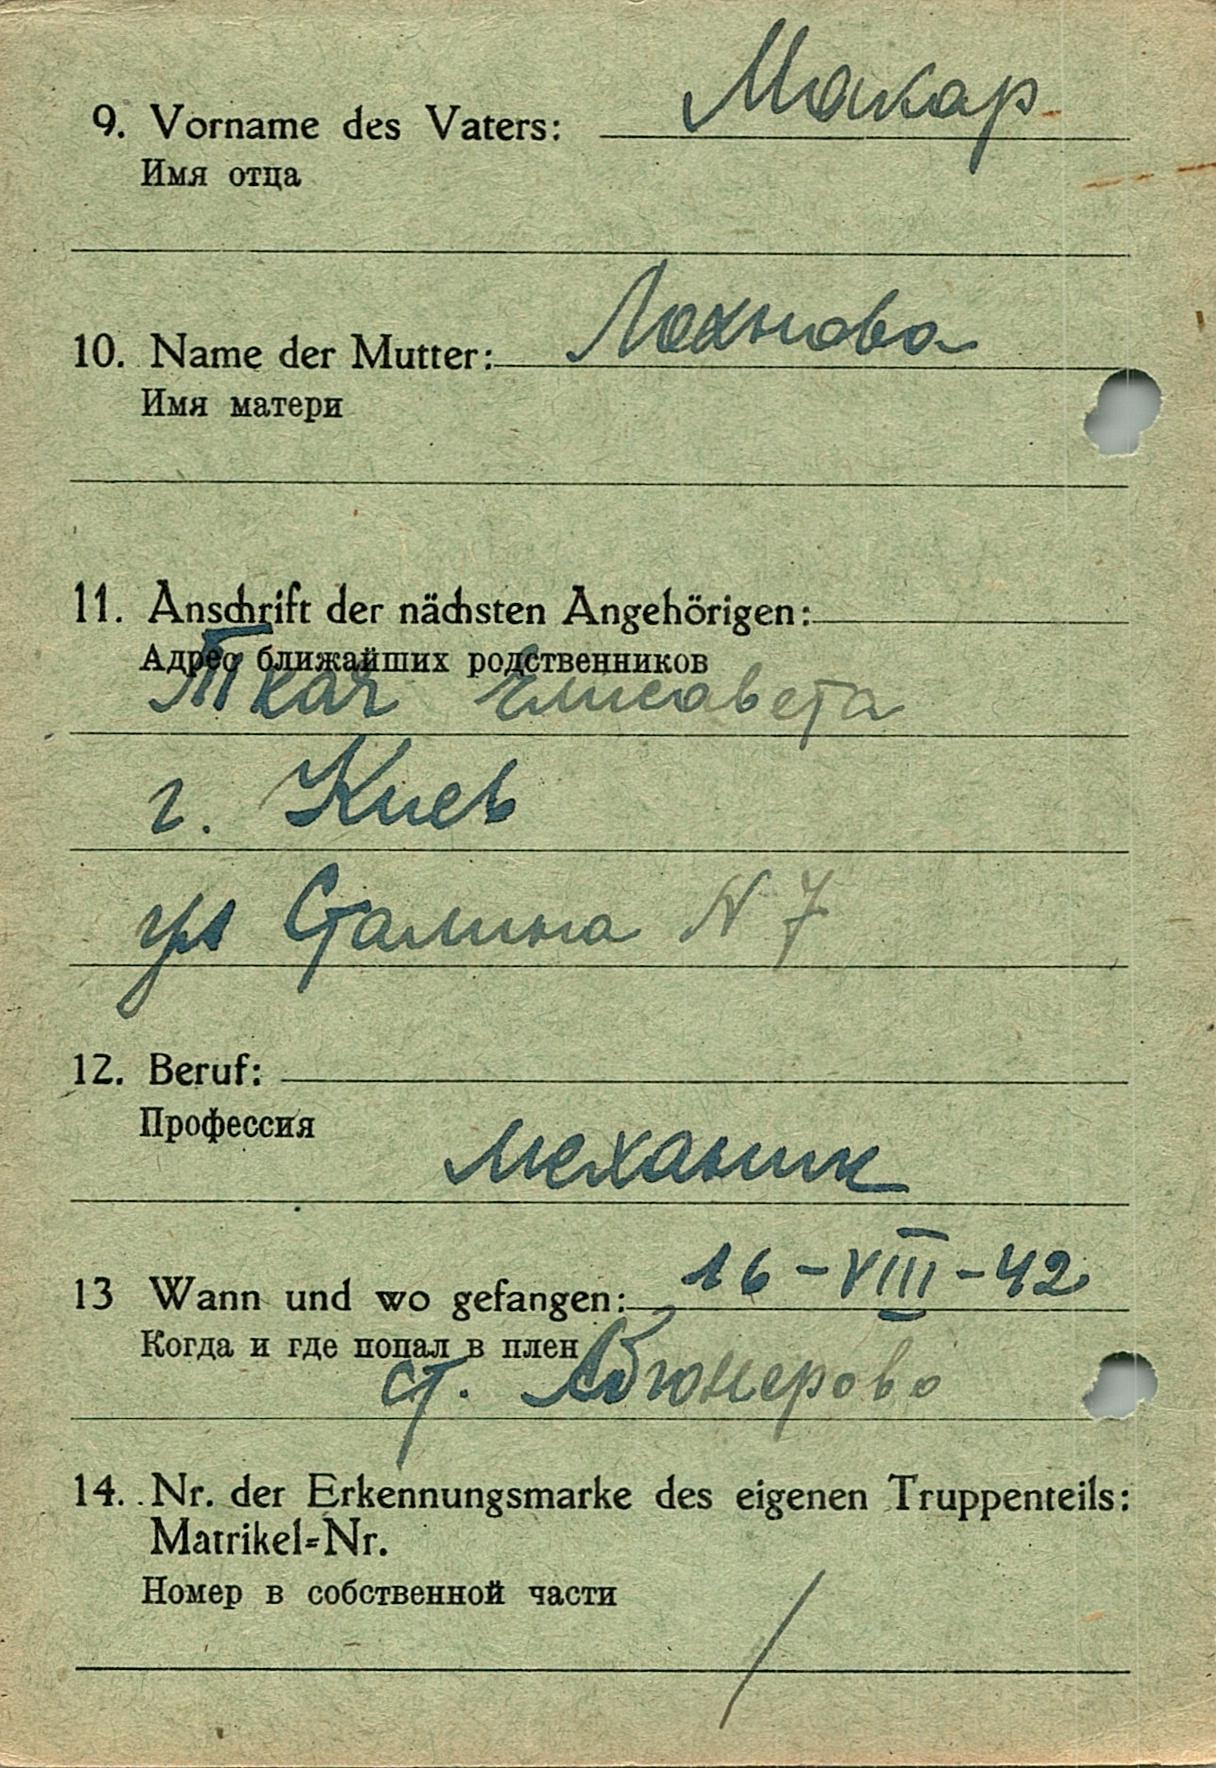 9. Vorname des Vaters: Макар
Имя отца
10. Name der Mutter: Лохнова
Имя матери
11. Anschrift der nächsten Angehörigen:
Адрес ближайших родственников
Ткач Елисавета
г. Киев
ул Сталина N 7
12. Beruf:
Профессия
механик
13 Wann und wo gefangen: 16-VIII-42
Когда и где попал в плен
ст.
14. Nr. der Erkennungsmarke des eigenen Truppenteils:
Matrikel=Nr.
Номер в собственной части
/